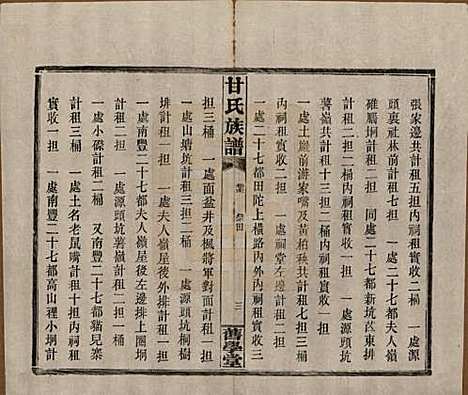 張家邊共計租五担內祠租實收二桶　一處二十七都夫人嶺
頭裏社林前計租一担　一處二十七都源頭坑
碓騰垇計租二担二桶　同處二十七都新坑苠東排
薯嶺共計租十三担二桶內祠租實收二担　一處源頭坑
一處土崩前游家嘴及黃柏秧共計租三担三桶
內祠租實收二担　一處祠堂左邊計租二担
一處二十七都田陀上橫路內外內祠租實收三
甘氏族譜
祭田
三
舊學堂
担三桶　一處面盆井及楓將軍對面計租一担
一處山塘坑計租三担二桶　一處源頭坑桐樹
排計租一担一桶　一處屋後外排計租一担
一處南豐二十七都夫人嶺屋後左邊排上圂垇
計租二担　一處源頭坑薯嶺計租二担一桶
一處小磜計租二桶　又南豐二十七都貓兒寨
計租三桶　一處土名老鼠嘴計租十担內祠租
實收一担　一處南豐二十七都高山裡小垇計